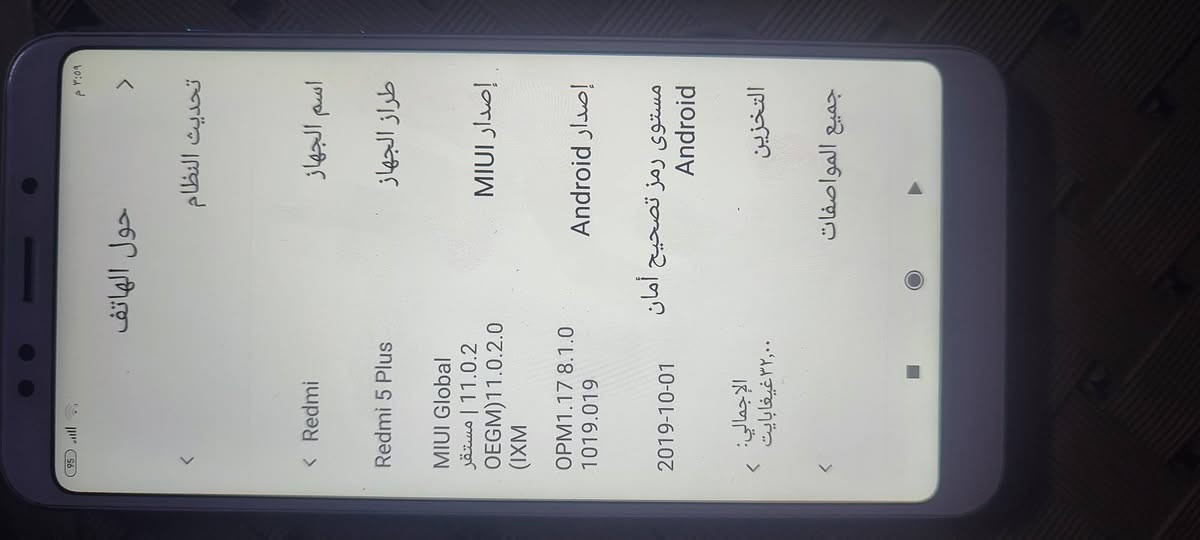 ٣:٥٩ م
95
حول الهاتف
تحديث النظام
اسم الجهاز
Redmi
طراز الجهاز
Redmi 5 Plus
إصدار MIUI
MIUI Global
مستقر | 11.0.2
OEGM)11.0.2.0
(IXM
إصدار Android
OPM1.17 8.1.0
1019.019
مستوى رمز تصحيح أمان
Android
2019-10-01
التخزين
الإجمالي:
٣٢٫٠٠غيغابايت
جميع المواصفات